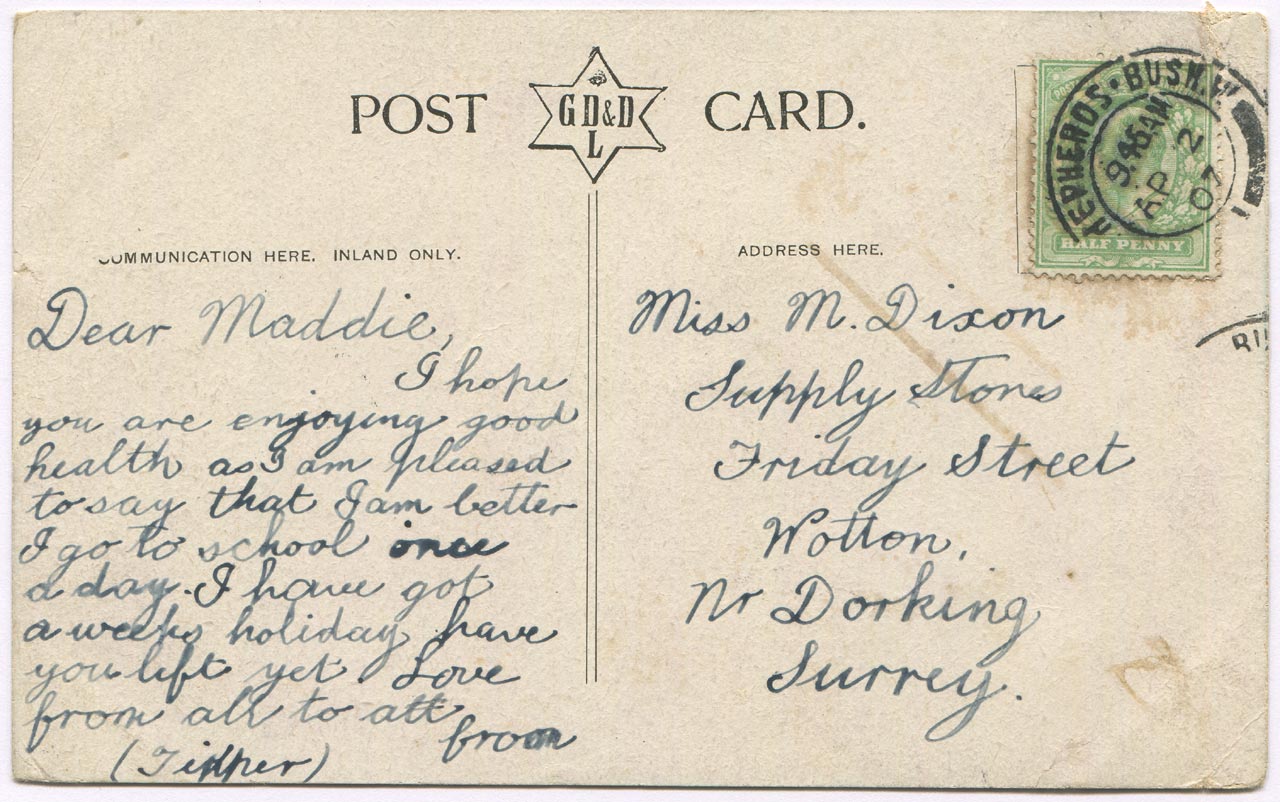 POST CARD.
G D & D
L
COMMUNICATION HERE. INLAND ONLY.
ADDRESS HERE.
HEPHERDS · BUSH. W
9.45 AM
AP 2
07
HALF PENNY
BU
Dear Maddie,
I hope
you are enjoying good
health as I am pleased
to say that I am better
I go to school once
a day. I have got
a weeks holiday have
you left yet Love
from all to all
from
Miss M. Dixon
Supply Stores
Friday Street
Wotton,
Nr Dorking
Surrey.